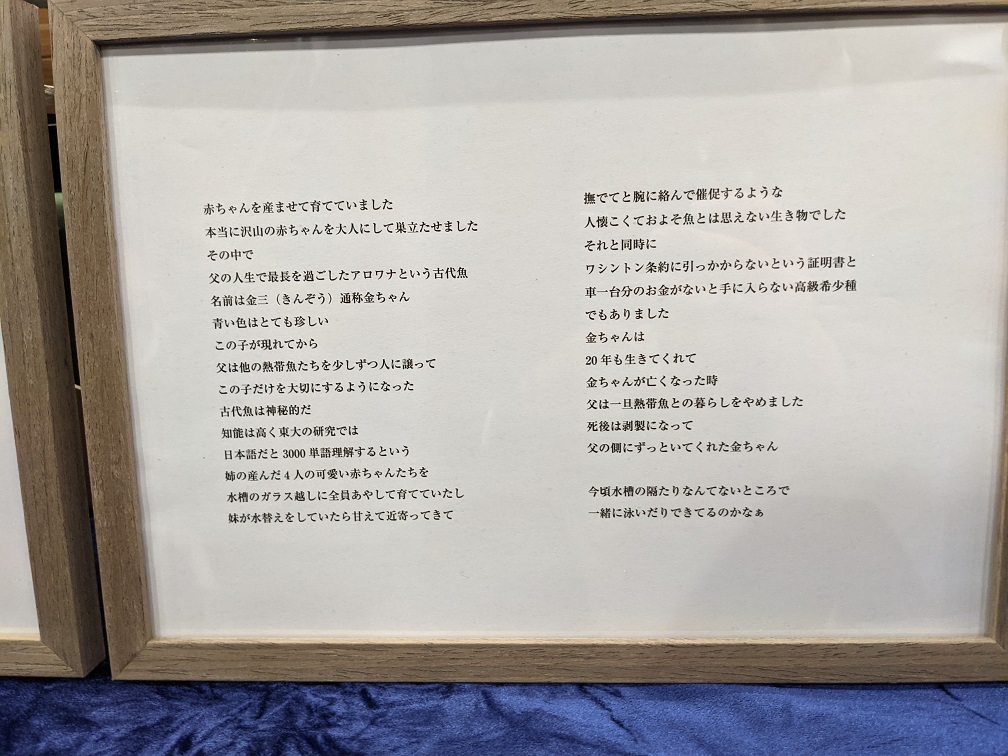 赤ちゃんを産ませて育てていました
本当に沢山の赤ちゃんを大人にして巣立たせました
その中で
父の人生で最長を過ごしたアロワナという古代魚
名前は金三（きんぞう）通称金ちゃん
青い色はとても珍しい
この子が現れてから
父は他の熱帯魚たちを少しずつ人に譲って
この子だけを大切にするようになった
古代魚は神秘的だ
知能は高く東大の研究では
日本語だと 3000 単語理解するという
姉の産んだ 4 人の可愛い赤ちゃんたちを
水槽のガラス越しに全員あやして育てていたし
妹が水替えをしていたら甘えて近寄ってきて
撫でてと腕に絡んで催促するような
人懐こくておよそ魚とは思えない生き物でした
それと同時に
ワシントン条約に引っかからないという証明書と
車一台分のお金がないと手に入らない高級希少種
でもありました
金ちゃんは
20 年も生きてくれて
金ちゃんが亡くなった時
父は一旦熱帯魚との暮らしをやめました
死後は剥製になって
父の側にずっといてくれた金ちゃん
今頃水槽の隔たりなんてないところで
一緒に泳いだりできてるのかなぁ